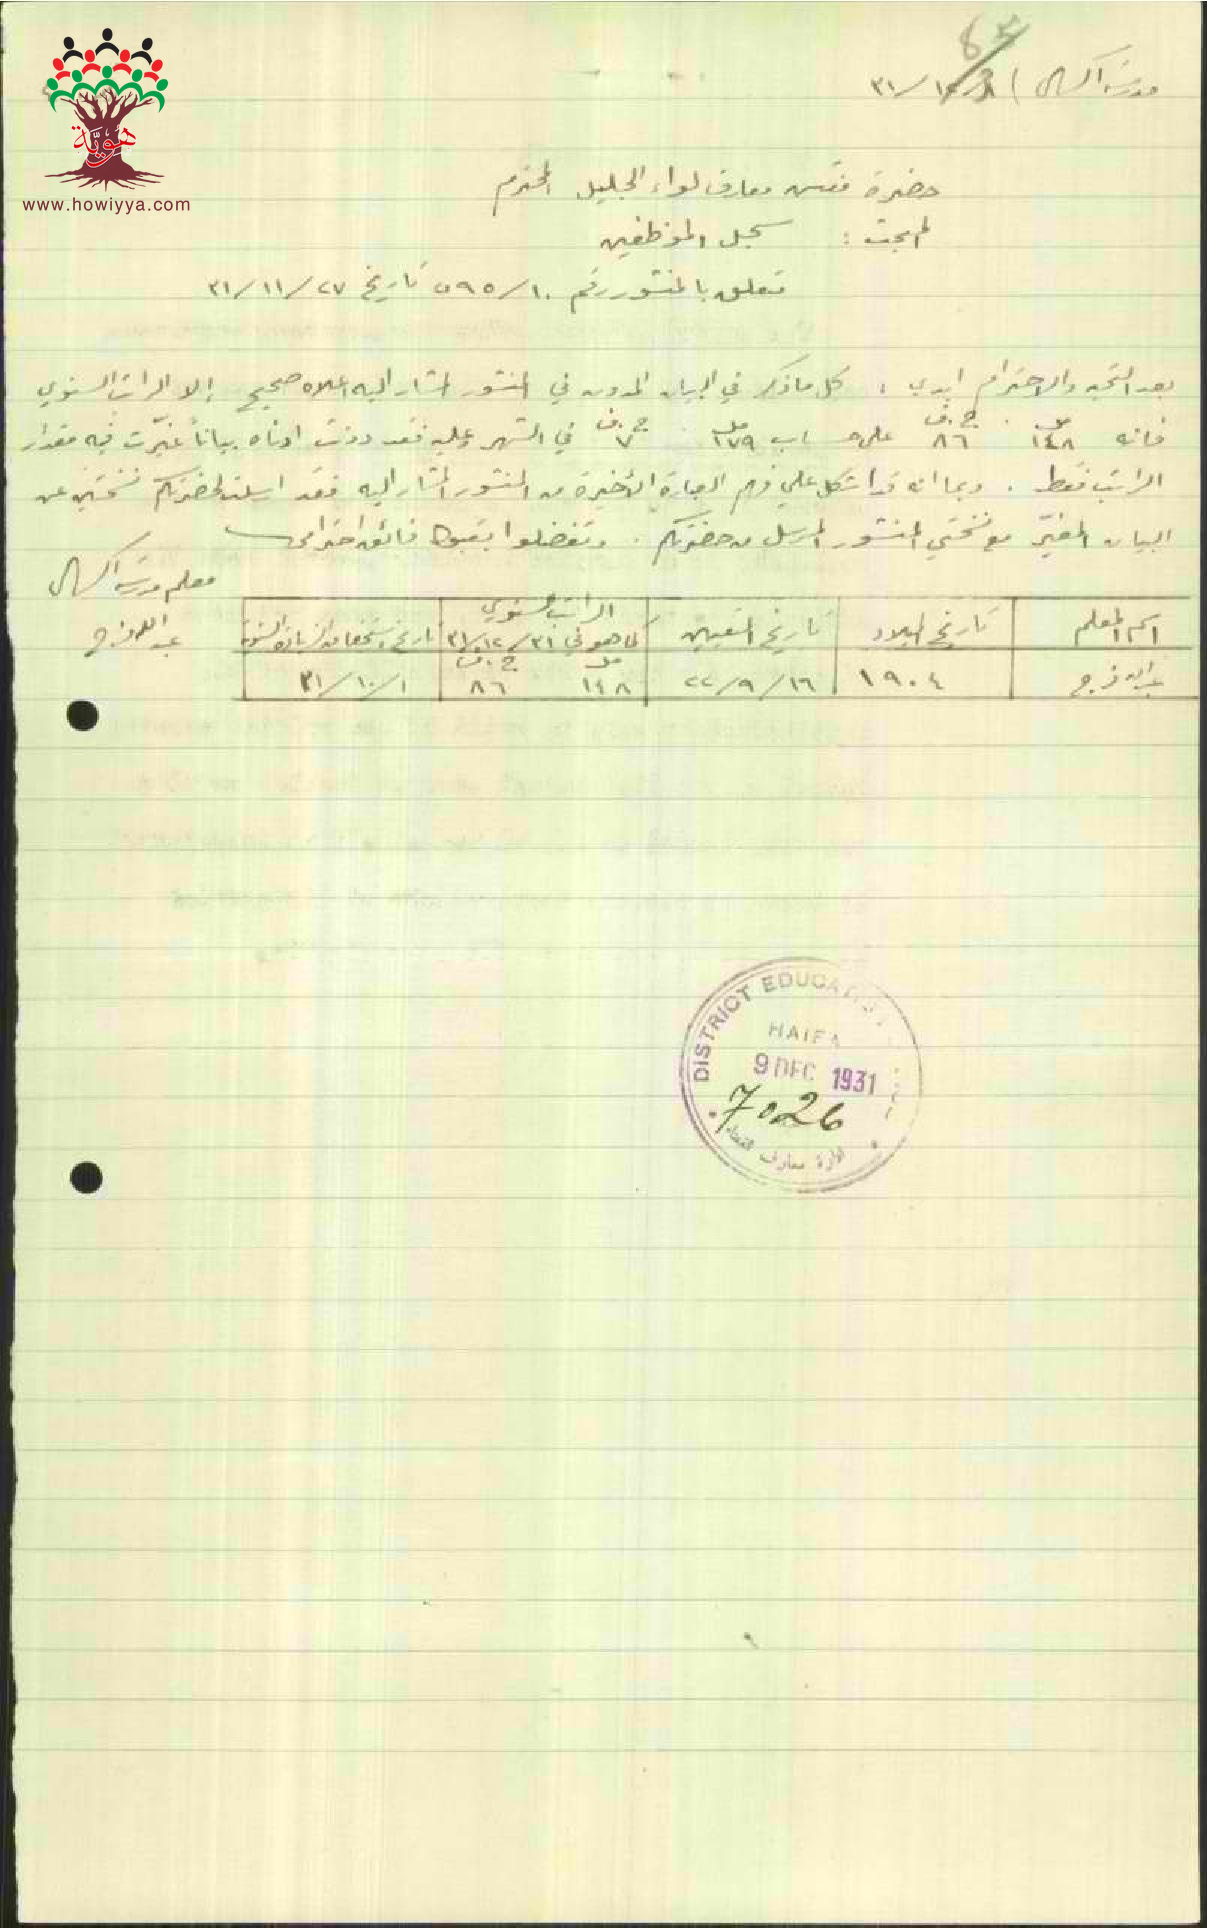 هَوِيَّة
www.howiyya.com
٦٣
مدرسة اكسال) ٣١/١٢/٨
حضرة مفتش معارف لواء الجليل المحترم
المبحث : سجل الموظفين
متعلق بالمنشور رقم ٥٩٥/١٠ تاريخ ٣١/١١/٢٧
بعد التحية والاحترام ابدي : كل ما ذكر في البيان المدون في المنشور المشار اليه اعلاه صحيح إلا الراتب السنوي
فانه مل ١٤٨ ج.ف ٨٦ على حساب مل ١٧٩ ج.ف ٧ في الشهر وعليه فقد دونت ادناه بياناً غيّرت فيه مقدار
الراتب فقط . وبما انه قد اشكل علي فهم العبارة الأخيرة من المنشور المشار اليه فقد ارسلت لحضرتكم نسختين عن
البيان المغيّر مع نسختي المنشور المرسل من حضرتكم . وتفضلوا بقبول فائق احترامي
معلم مدرسة اكسال
عبدالله فرج
اسم المعلم تاريخ الميلاد تاريخ التعيين الراتب السنوي كما هو في ٣١/١٢/٣١ تاريخ استحقاقه الزيادة السنوية
عبدالله فرج ١٩٠٤ ٢٢/٩/١٦ مل ١٤٨ ج.ف ٨٦ ٣١/١٠/١
DISTRICT EDUCATION
HAIFA
9 DEC 1931
7026
ادارة معارف القضاء